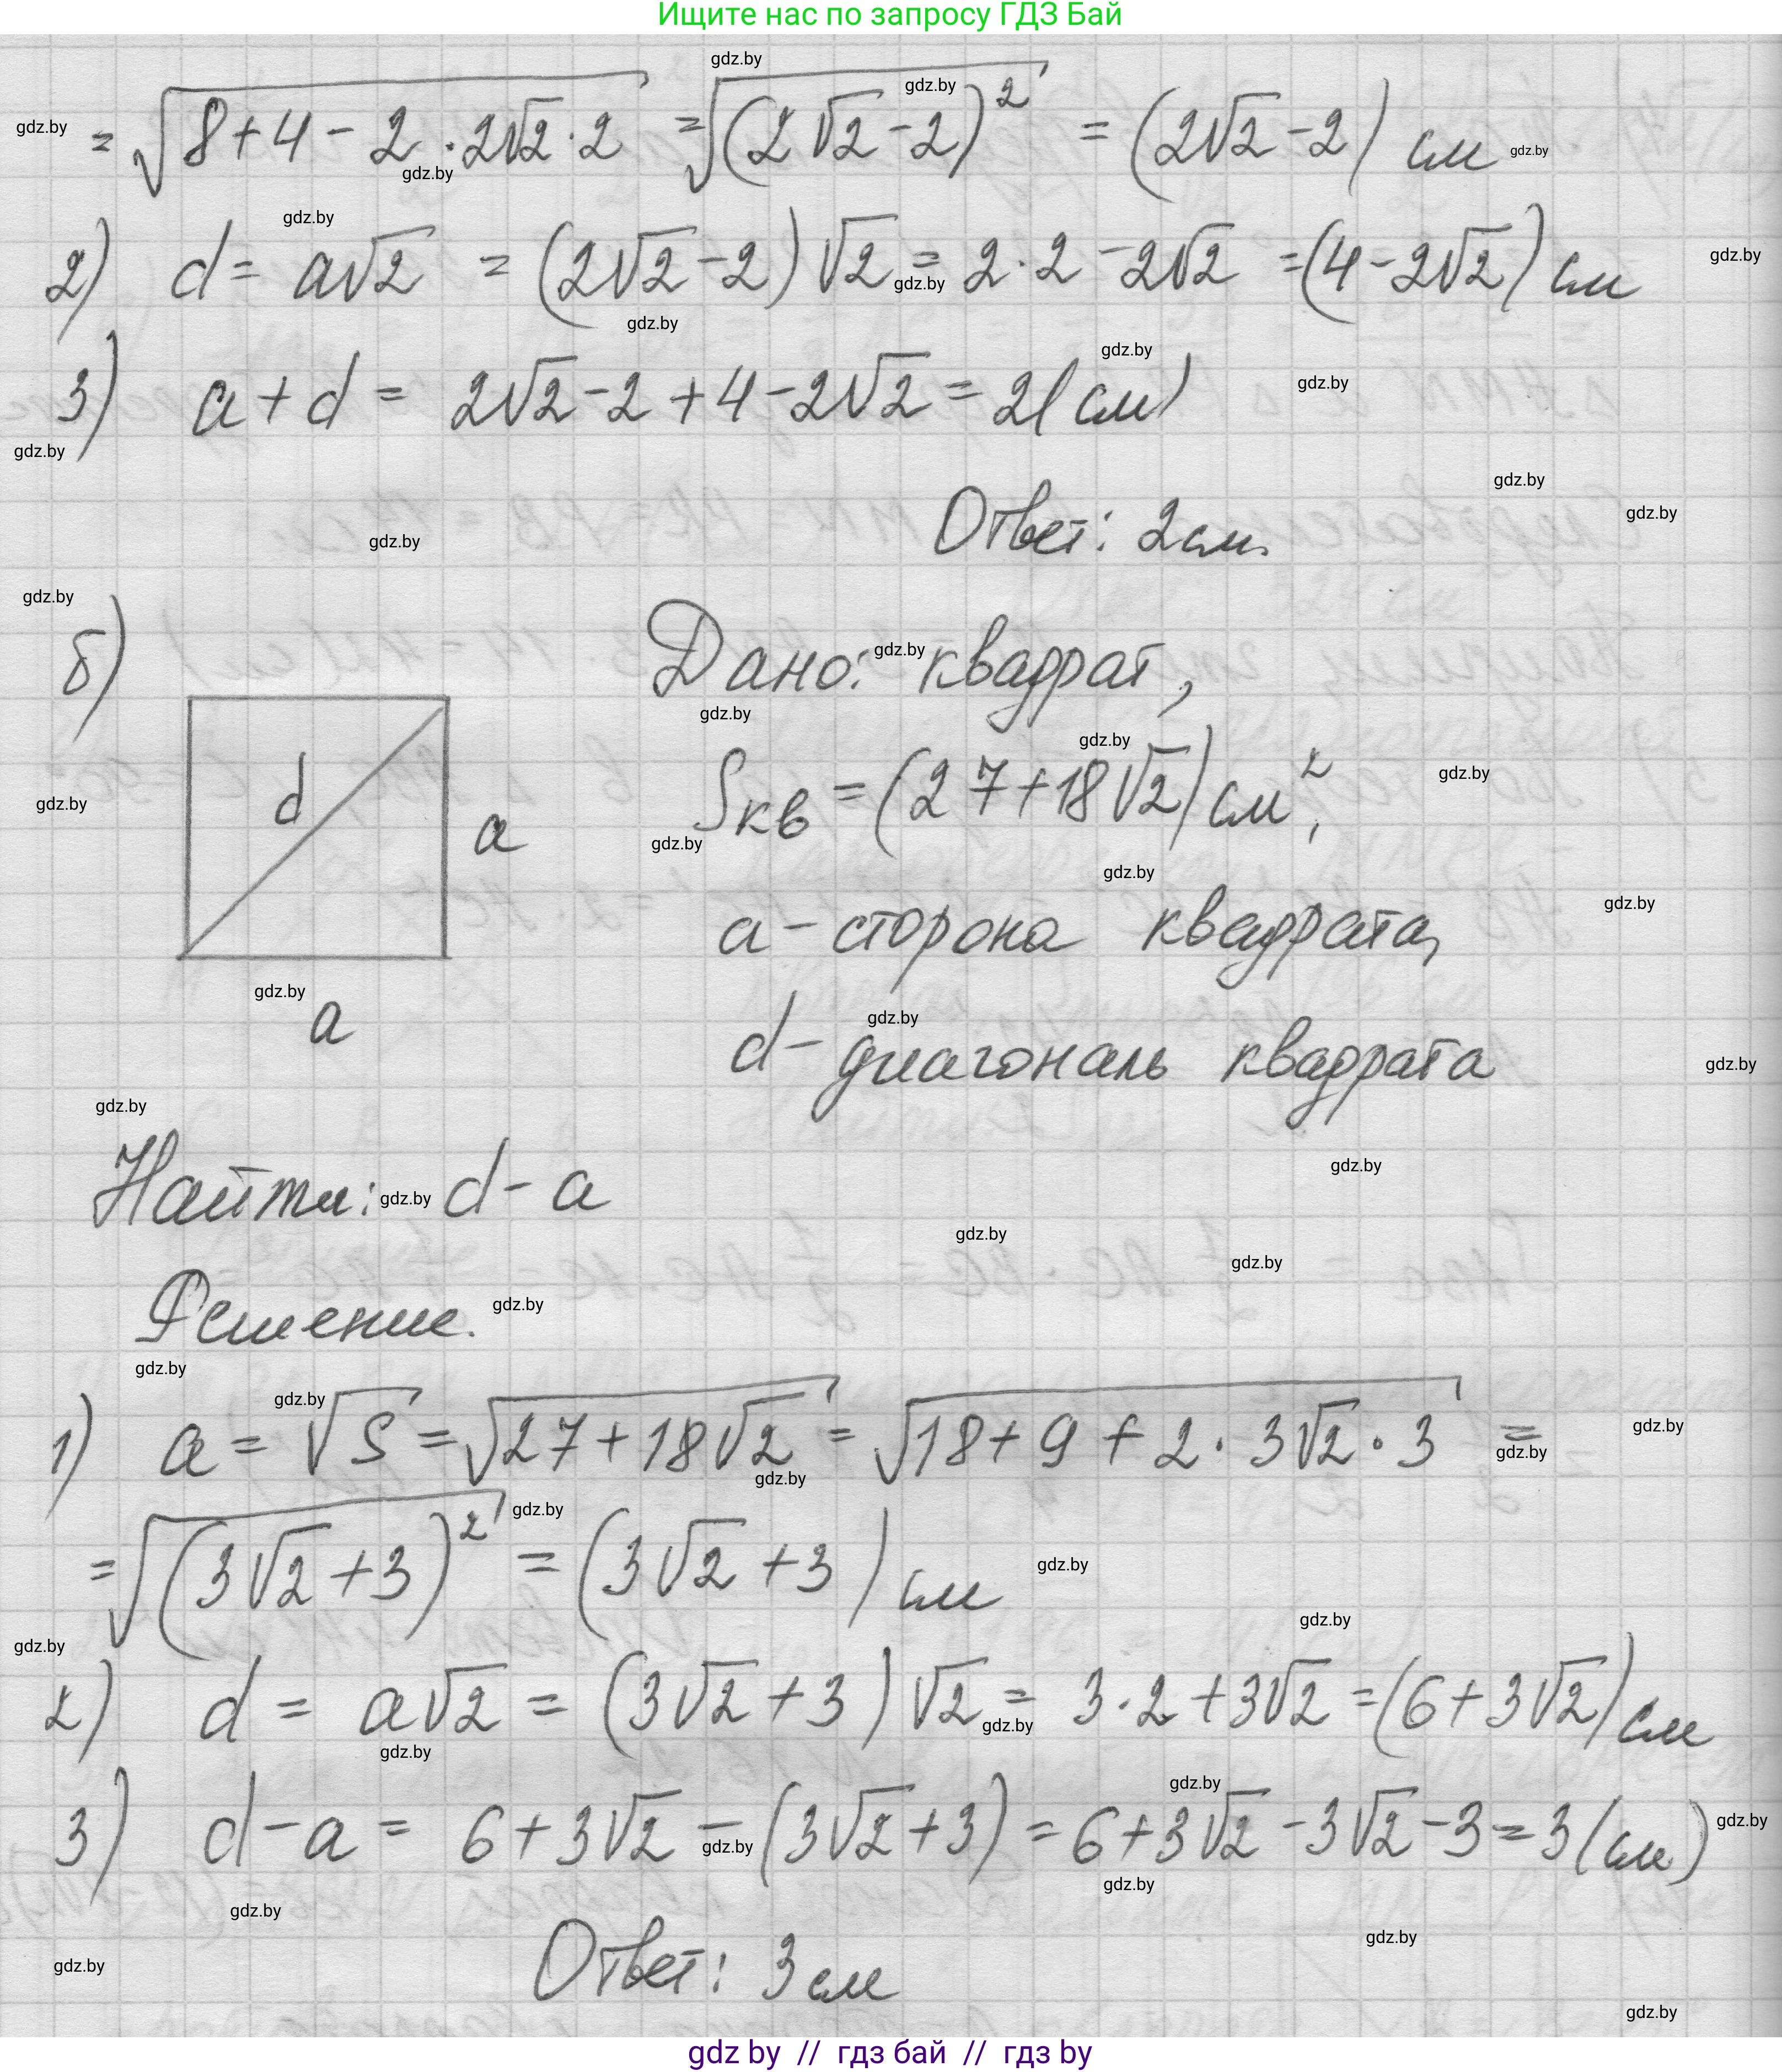 Ищите нас по запросу ГДЗ Бай
= √(8+4-2·2√2·2) = √((2√2-2)²) = (2√2-2) см
2) d = a√2 = (2√2-2)√2 = 2·2-2√2 = (4-2√2) см
3) a+d = 2√2-2+4-2√2 = 2(см)
Ответ: 2см.
б)
Дано: квадрат,
Sкв = (27+18√2) см²,
d
a
a - сторона квадрата,
a
d - диагональ квадрата
Найти: d - a
Решение.
1) a = √S = √(27+18√2) = √(18+9+2·3√2·3) =
= √((3√2+3)²) = (3√2+3) см
2) d = a√2 = (3√2+3)√2 = 3·2+3√2 = (6+3√2) см
3) d-a = 6+3√2-(3√2+3) = 6+3√2-3√2-3=3(см)
Ответ: 3см
gdz by // гдз бай // гдз by